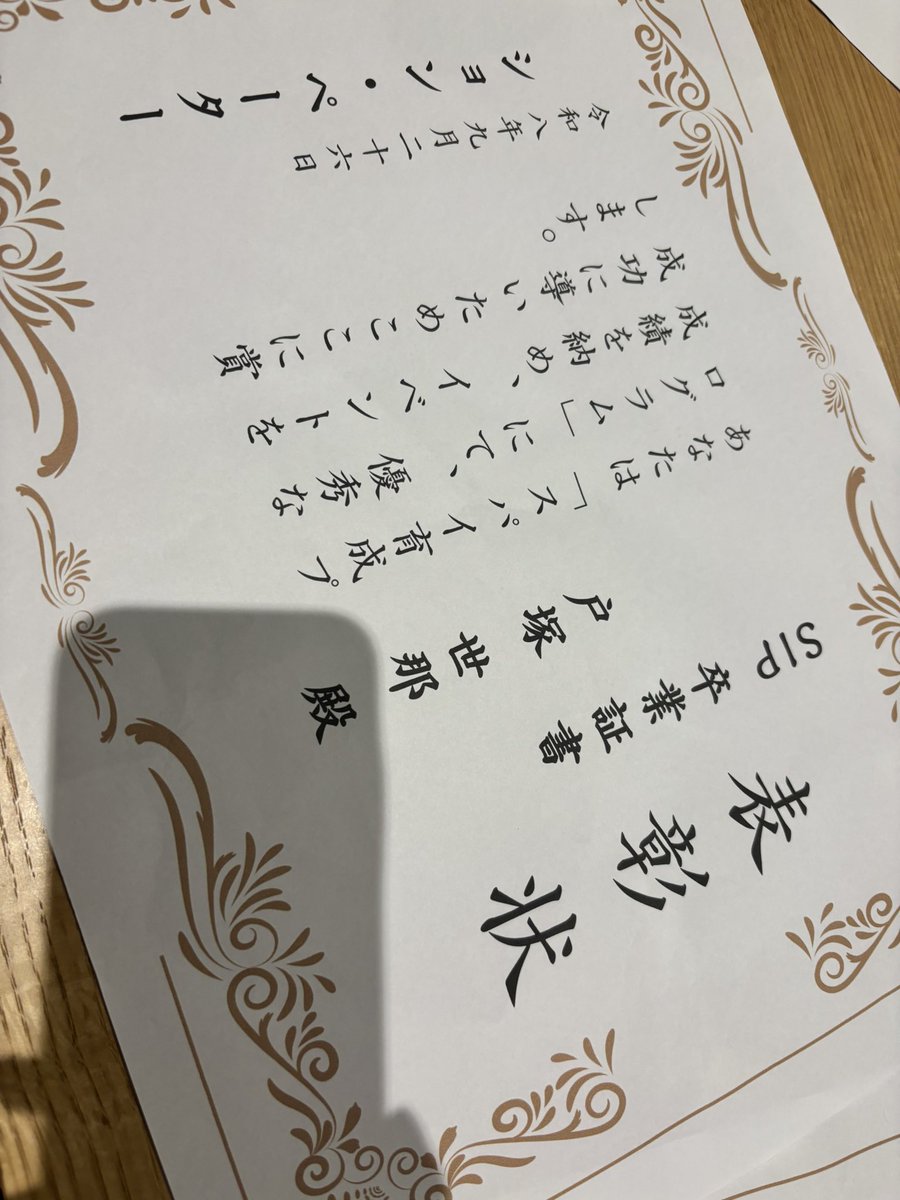 表彰状
SIP卒業証書
戸塚世那 殿
あなたは「スパイ育成プ
ログラム」にて、優秀な
成績を納め、イベントを
成功に導いためここに賞
します。
令和八年九月二十六日
ション・ペーター